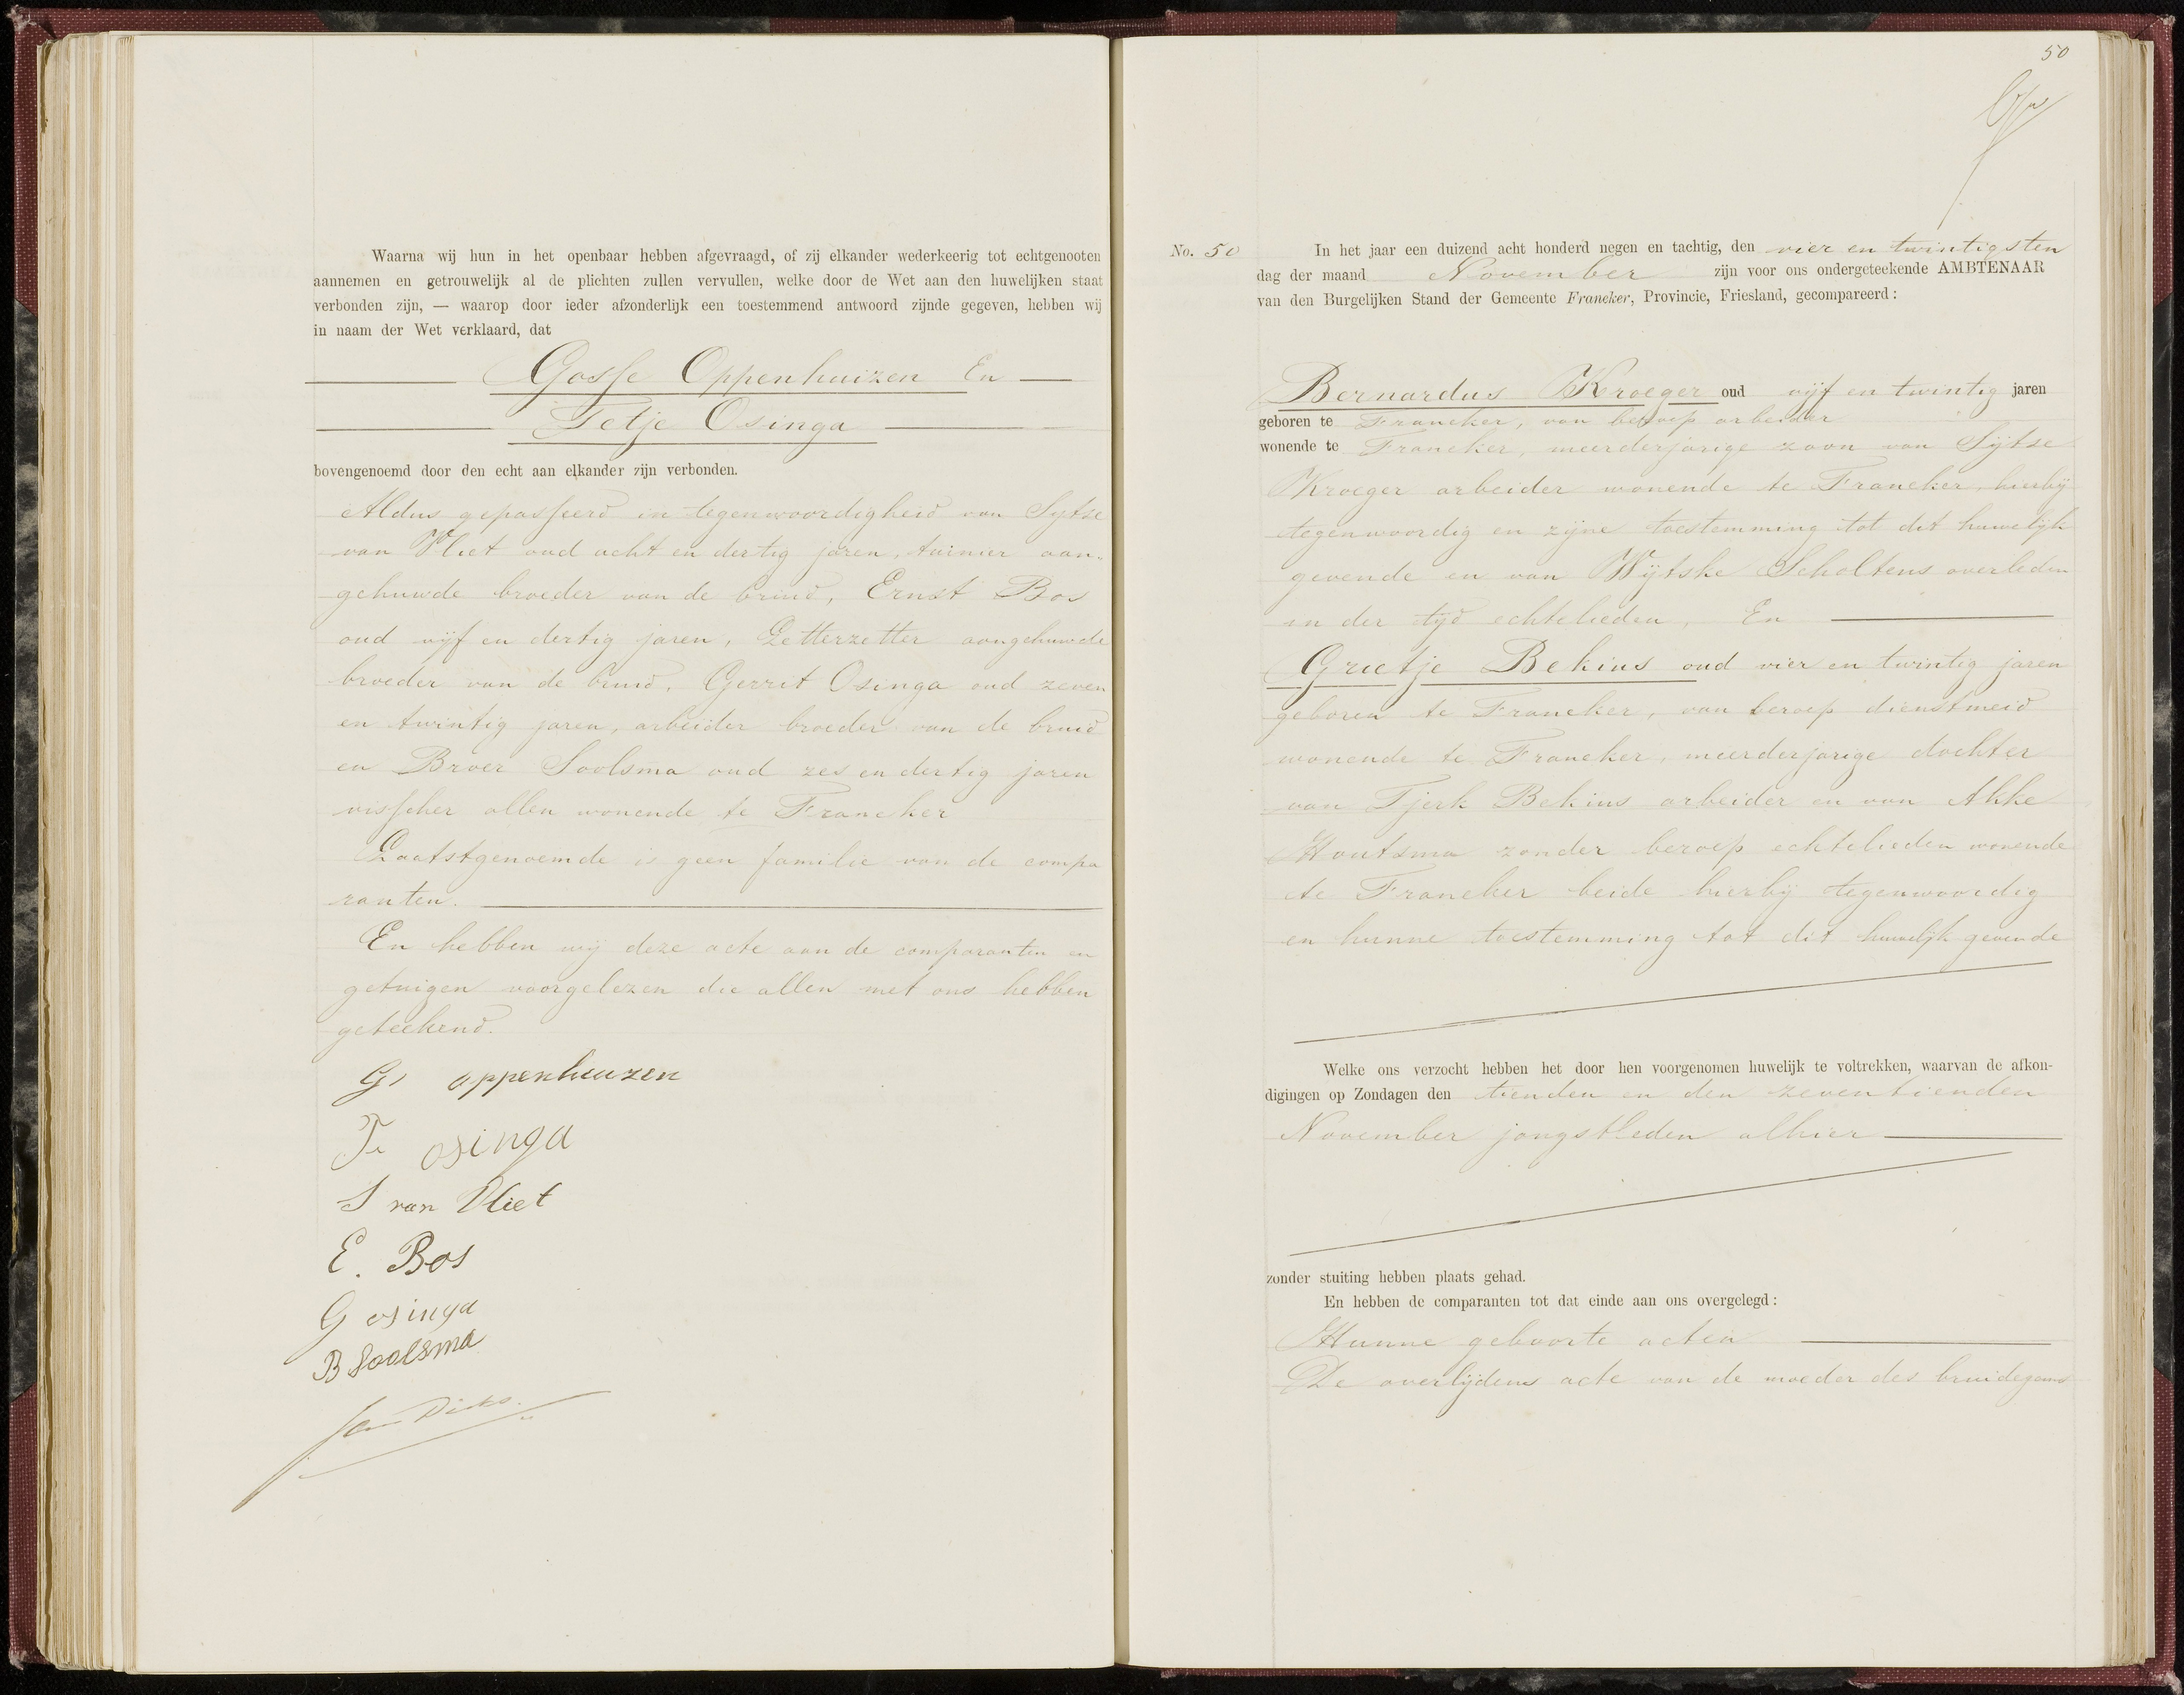 Waarna wij hun in het openbaar hebben afgevraagd, of zij elkander wederkeerig tot echtgenooten
aannemen en getrouwelijk al de plichten zullen vervullen, welke door de Wet aan den huwelijken staat
verbonden zijn, — waarop door ieder afzonderlijk een toestemmend antwoord zijnde gegeven, hebben wij
in naam der Wet verklaard, dat
Gosse Oppenhuizen En
Tetje Osinga
bovengenoemd door den echt aan elkander zijn verbonden.
Aldus gepasseerd in tegenwoordigheid van Sytse
van Vliet oud acht en dertig jaren, tuinier aan-
gehuwde broeder van de bruid, Ernst Bos
oud vijf en dertig jaren, Letterzetter aangehuwde
broeder van de bruid, Gerrit Osinga oud zeven
en twintig jaren, arbeider broeder van de bruid
en Broer Soolsma oud zes en dertig jaren
visscher allen wonende te Franeker
Laatstgenoemde is geen familie van de compa
ranten.
En hebben wij deze acte aan de comparanten en
getuigen voorgelezen die allen met ons hebben
geteekend.
G oppenhuizen
Te osinga
S van Vliet
E. Bos
G osinga
B Soolsma
Jan Dirks.
50
No. 50
In het jaar een duizend acht honderd negen en tachtig, den vier en twintigsten
dag der maand November zijn voor ons ondergeteekende AMBTENAAR
van den Burgelijken Stand der Gemeente Franeker, Provincie, Friesland, gecompareerd:
Bernardus Kroeger oud vijf en twintig jaren
geboren te Franeker, van beroep arbeider
wonende te Franeker, meerderjarige zoon van Sijtse
Kroeger arbeider wonende te Franeker, hierbij
tegenwoordig en zijne toestemming tot dit huwelijk
gevende en van Wijtske Scholtens overleden
in der tijd echtelieden, En
Grietje Bekius oud vier en twintig jaren
geboren te Franeker, van beroep dienstmeid
wonende te Franeker, meerderjarige dochter
van Tjerk Bekius arbeider en van Akke
Houtsma zonder beroep echtelieden wonende
te Franeker beide hierbij tegenwoordig
en hunne toestemming tot dit huwelijk gevende
Welke ons verzocht hebben het door hen voorgenomen huwelijk te voltrekken, waarvan de afkon-
digingen op Zondagen den tienden en den zeventienden
November jongstleden alhier
zonder stuiting hebben plaats gehad.
En hebben de comparanten tot dat einde aan ons overgelegd:
Hunne geboorte acten
De overlijdens acte van de moeder des bruidegoms